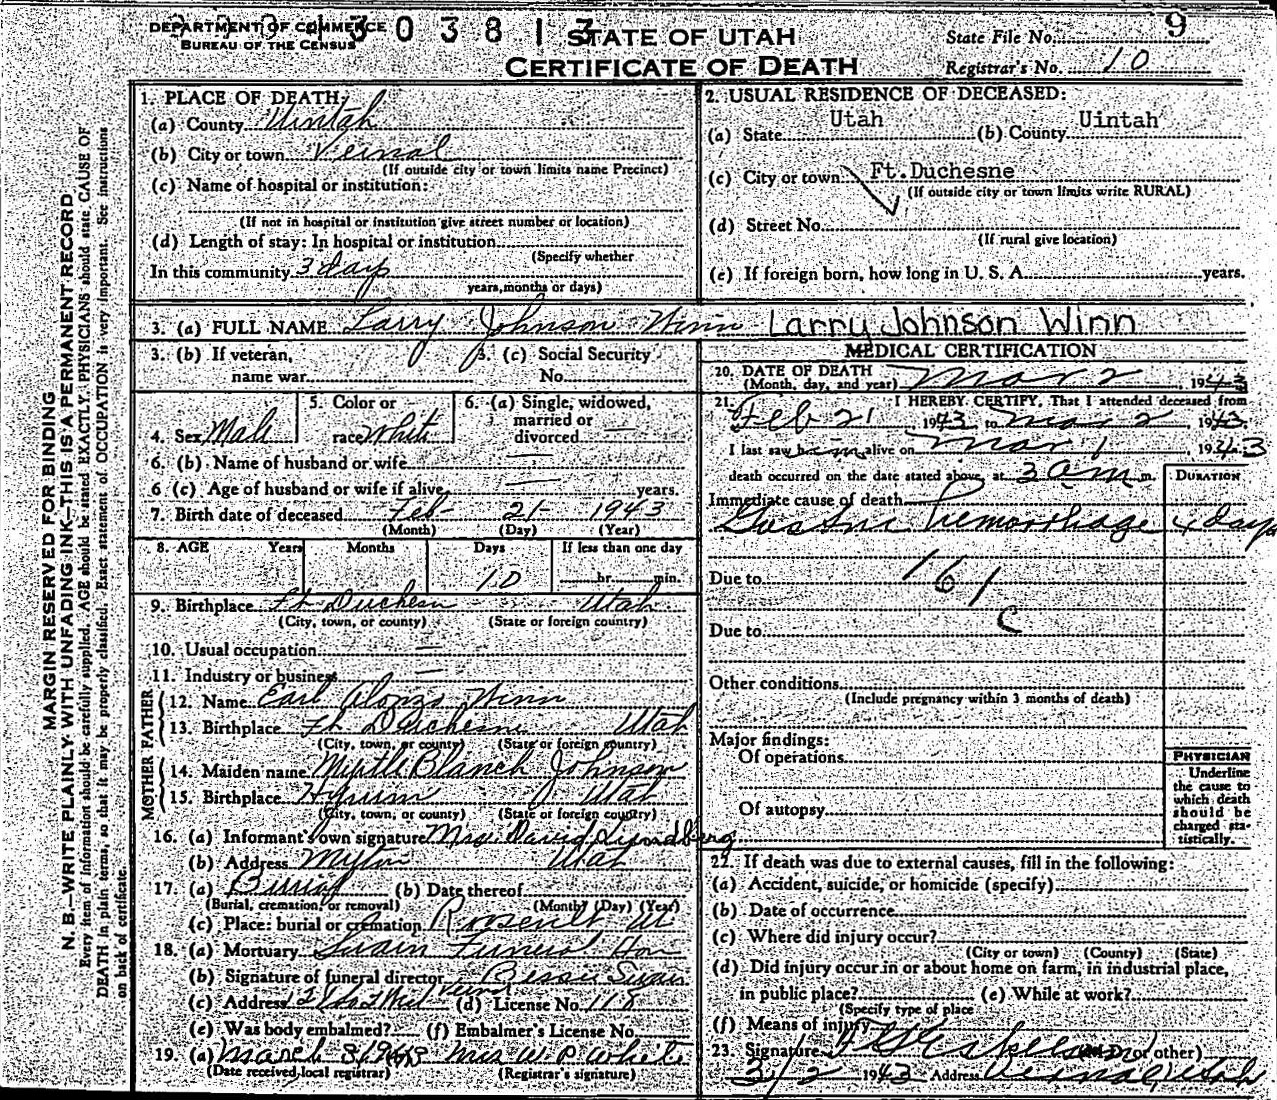 DEPARTMENT OF COMMERCE
BUREAU OF THE CENSUS
303813
STATE OF UTAH
CERTIFICATE OF DEATH
State File No. 9
Registrar's No. 10
MARGIN RESERVED FOR BINDING
N. B.—WRITE PLAINLY, WITH UNFADING INK—THIS IS A PERMANENT RECORD
Every item of information should be carefully supplied. AGE should be stated EXACTLY. PHYSICIANS should state CAUSE OF
DEATH in plain terms, so that it may be properly classified. Exact statement of OCCUPATION is very important. See instructions
on back of certificate.
1. PLACE OF DEATH:
(a) County Uintah
(b) City or town Vernal
(If outside city or town limits name Precinct)
(c) Name of hospital or institution:
(If not in hospital or institution give street number or location)
(d) Length of stay: In hospital or institution
(Specify whether
In this community 3 days
years, months or days)
2. USUAL RESIDENCE OF DECEASED:
(a) State Utah (b) County Uintah
(c) City or town Ft. Duchesne
(If outside city or town limits write RURAL)
(d) Street No.
(If rural give location)
(e) If foreign born, how long in U. S. A. years.
3. (a) FULL NAME Larry Johnson Winn Larry Johnson Winn
3. (b) If veteran,
name war
3. (c) Social Security
No.
4. Sex Male
5. Color or
race White
6. (a) Single, widowed,
married or
divorced —
6. (b) Name of husband or wife —
6 (c) Age of husband or wife if alive — years.
7. Birth date of deceased Feb 21 1943
(Month) (Day) (Year)
8. AGE Years Months Days If less than one day
10 hr. min.
9. Birthplace Ft Duchesn Utah
(City, town, or county) (State or foreign country)
10. Usual occupation —
11. Industry or business —
FATHER
12. Name Earl Alonzo Winn
13. Birthplace Ft Duchesn Utah
(City, town, or county) (State or foreign country)
MOTHER
14. Maiden name Myrtle Blanch Johnson
15. Birthplace Hyrum Utah
(City, town, or county) (State or foreign country)
16. (a) Informant's own signature Mrs David Lundberg
(b) Address Myton Utah
17. (a) Burial (b) Date thereof
(Burial, cremation, or removal) (Month) (Day) (Year)
(c) Place: burial or cremation Ut
18. (a) Mortuary Swain Funeral Hom
(b) Signature of funeral director Swain
(c) Address (d) License No. 118
(e) Was body embalmed? (f) Embalmer's License No.
19. (a) March 3 1943 Mrs W P White
(Date received local registrar) (Registrar's signature)
MEDICAL CERTIFICATION
20. DATE OF DEATH
(Month, day, and year) Mar 2, 1943
21. I HEREBY CERTIFY, That I attended deceased from
Feb 21 1943 to Mar 2, 1943.
I last saw him alive on Mar 1, 1943
death occurred on the date stated above, at 3 am m.
DURATION
Immediate cause of death
hemorrhage 4 days
Due to 161
c
Due to
Other conditions
(Include pregnancy within 3 months of death)
Major findings:
Of operations
Of autopsy
PHYSICIAN
Underline
the cause to
which death
should be
charged sta-
tistically.
22. If death was due to external causes, fill in the following:
(a) Accident, suicide, or homicide (specify)
(b) Date of occurrence
(c) Where did injury occur?
(City or town) (County) (State)
(d) Did injury occur in or about home on farm, in industrial place,
in public place? (e) While at work?
(Specify type of place
(f) Means of injury
23. Signature (M.D. or other)
3/2 1943 Address Vernal, Utah